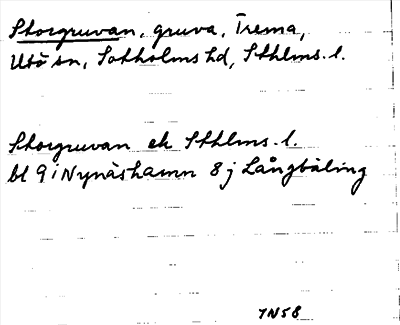 Storgruvan, gruva, Trema,
Utö sn, Sotholms hd, Sthlms. l.
Storgruvan ek Sthlms. l.
bl 9 i Nynäshamn 8 j Långbäling
7N58